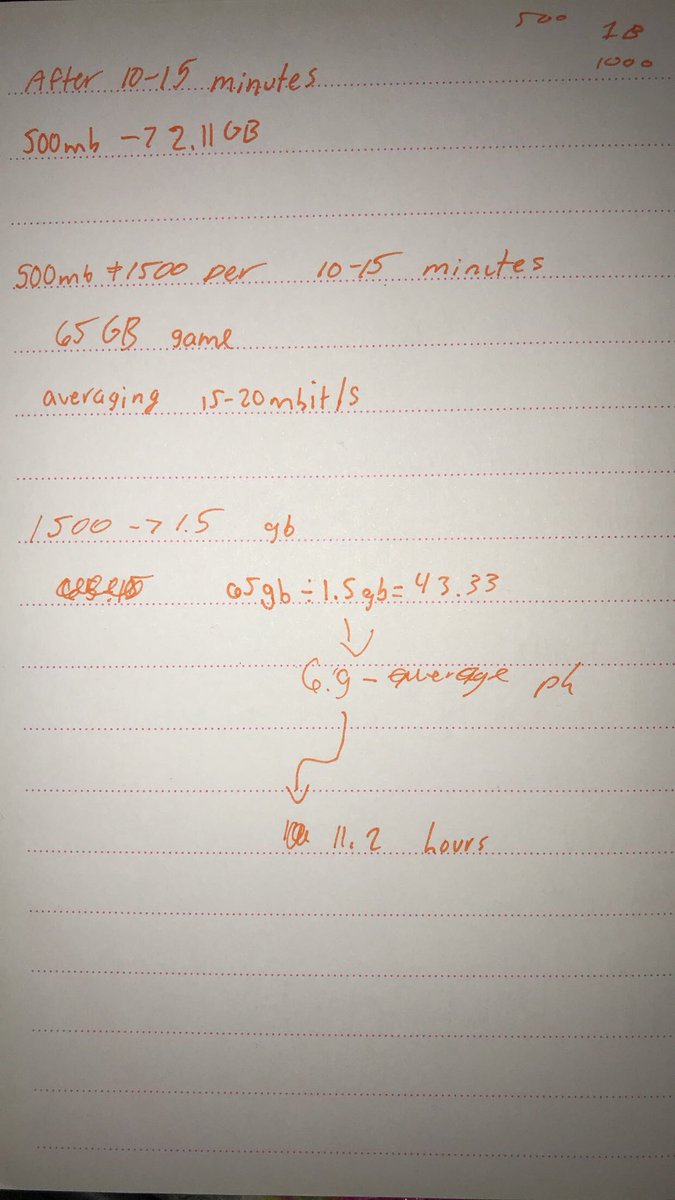 500 1B
1000
After 10-15 minutes
500mb -> 2.11GB
500mb +1500 per 10-15 minutes
65 GB game
averaging 15-20mbit/s
1500 -> 1.5 gb
65gb ÷ 1.5gb = 43.33
6.9 - average ph
11.2 hours